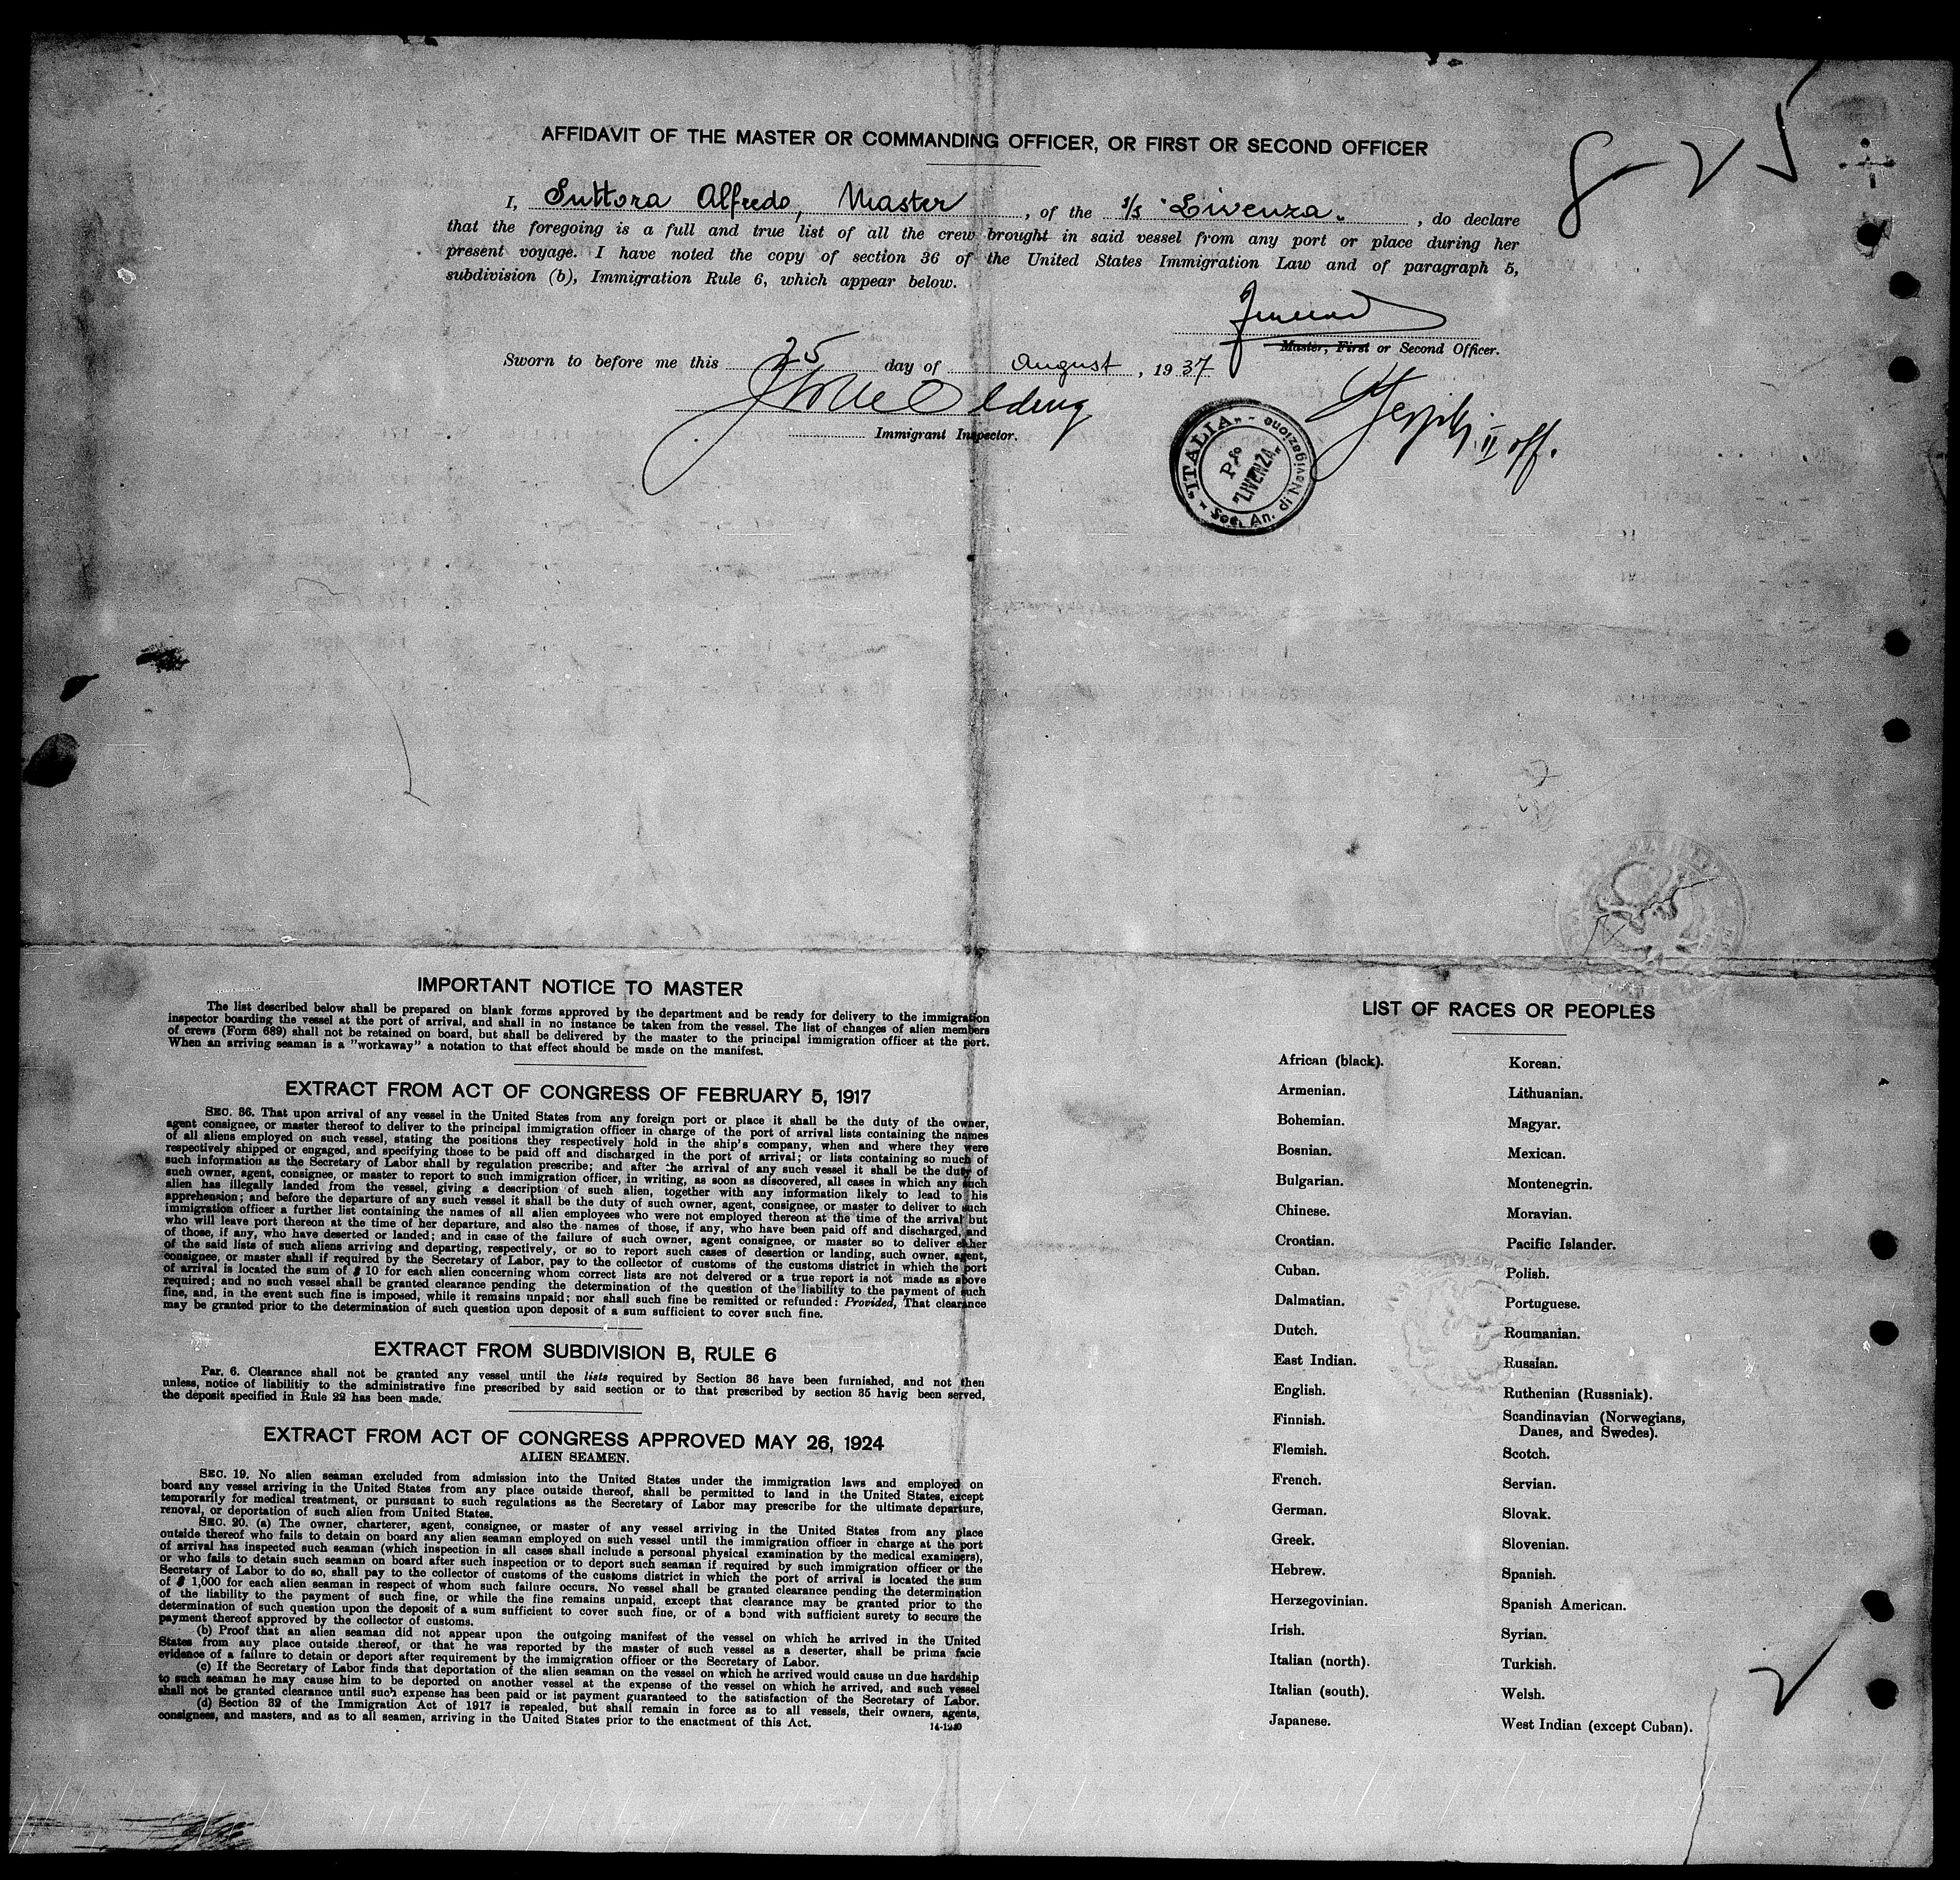 AFFIDAVIT OF THE MASTER OR COMMANDING OFFICER, OR FIRST OR SECOND OFFICER
8-25
I, Suttora Alfredo, Master, of the s/s "Livenza", do declare
that the foregoing is a full and true list of all the crew brought in said vessel from any port or place during her
present voyage. I have noted the copy of section 36 of the United States Immigration Law and of paragraph 5,
subdivision (b), Immigration Rule 6, which appear below.
Master, First or Second Officer.
Sworn to before me this 25 day of August, 1937
II off.
Immigrant Inspector.
"ITALIA" - Soc. An. di Navigazione -
P.fo
"LIVENZA"
IMPORTANT NOTICE TO MASTER
The list described below shall be prepared on blank forms approved by the department and be ready for delivery to the immigration
inspector boarding the vessel at the port of arrival, and shall in no instance be taken from the vessel. The list of changes of alien members
of crews (Form 689) shall not be retained on board, but shall be delivered by the master to the principal immigration officer at the port.
When an arriving seaman is a "workaway" a notation to that effect should be made on the manifest.
EXTRACT FROM ACT OF CONGRESS OF FEBRUARY 5, 1917
SEC. 36. That upon arrival of any vessel in the United States from any foreign port or place it shall be the duty of the owner,
agent consignee, or master thereof to deliver to the principal immigration officer in charge of the port of arrival lists containing the names
of all aliens employed on such vessel, stating the positions they respectively hold in the ship's company, when and where they were
respectively shipped or engaged, and specifying those to be paid off and discharged in the port of arrival; or lists containing so much of
such information as the Secretary of Labor shall by regulation prescribe; and after the arrival of any such vessel it shall be the duty of
such owner, agent, consignee, or master to report to such immigration officer, in writing, as soon as discovered, all cases in which any such
alien has illegally landed from the vessel, giving a description of such alien, together with any information likely to lead to his
apprehension; and before the departure of any such vessel it shall be the duty of such owner, agent, consignee, or master to deliver to such
immigration officer a further list containing the names of all alien employees who were not employed thereon at the time of the arrival but
who will leave port thereon at the time of her departure, and also the names of those, if any, who have been paid off and discharged, and
of those, if any, who have deserted or landed; and in case of the failure of such owner, agent consignee, or master so to deliver either
of the said lists of such aliens arriving and departing, respectively, or so to report such cases of desertion or landing, such owner, agent,
consignee, or master shall if required by the Secretary of Labor, pay to the collector of customs of the customs district in which the port
of arrival is located the sum of $ 10 for each alien concerning whom correct lists are not delvered or a true report is not made as above
required; and no such vessel shall be granted clearance pending the determination of the question of the liability to the payment of such
fine, and, in the event such fine is imposed, while it remains unpaid; nor shall such fine be remitted or refunded: Provided, That clearance
may be granted prior to the determination of such question upon deposit of a sum sufficient to cover such fine.
EXTRACT FROM SUBDIVISION B, RULE 6
Par. 6. Clearance shall not be granted any vessel until the lists required by Section 36 have been furnished, and not then
unless, notice of liabilitiy to the administrative fine prescribed by said section or to that prescribed by section 35 havig been served,
the deposit specified in Rule 22 has been made.
EXTRACT FROM ACT OF CONGRESS APPROVED MAY 26, 1924
ALIEN SEAMEN.
SEC. 19. No alien seaman excluded from admission into the United States under the immigration laws and employed on
board any vessel arriving in the United States from any place outside thereof, shall be permitted to land in the United States, except
temporarily for medical treatment, or pursuant to such regulations as the Secretary of Labor may prescribe for the ultimate departure,
removal, or deportation of such alien from United States.
SEC. 20. (a) The owner, charterer, agent, consignee, or master of any vessel arriving in the United States from any place
outside thereof who fails to detain on board any alien seaman employed on such vessel until the immigration officer in charge at the port
of arrival has inspected such seaman (which inspection in all cases shall include a personal physical examination by the medical examiners),
or who fails to detain such seaman on board after such inspection or to deport such seaman if required by such immigration officer or the
Secretary of Labor to do so, shall pay to the collector of customs of the customs district in which the port of arrival is located the sum
of $ 1,000 for each alien seaman in respect of whom such failure occurs. No vessel shall be granted clearance pending the determination
of the liability to the payment of such fine, or while the fine remains unpaid, except that clearance may be granted prior to the
determination of such question upon the deposit of a sum sufficient to cover such fine, or of a bond with sufficient surety to secure the
payment thereof approved by the collector of customs.
(b) Proof that an alien seaman did not appear upon the outgoing manifest of the vessel on which he arrived in the United
States from any place outside thereof, or that he was reported by the master of such vessel as a deserter, shall be prima facie
evidence of a failure to detain or deport after requirement by the immigration officer or the Secretary of Labor.
(c) If the Secretary of Labor finds that deportation of the alien seaman on the vessel on which he arrived would cause un due hardship
to such seaman he may cause him to be deported on another vessel at the expense of the vessel on which he arrived, and such vessel
shall not be granted clearance until such expense has been paid or ist payment guaranteed to the satisfaction of the Secretary of Labor.
(d) Section 32 of the Immigration Act of 1917 is repealed, but shall remain in force as to all vessels, their owners, agents,
consignees, and masters, and as to all seamen, arriving in the United States prior to the enactment of this Act.
LIST OF RACES OR PEOPLES
African (black).
Armenian.
Bohemian.
Bosnian.
Bulgarian.
Chinese.
Croatian.
Cuban.
Dalmatian.
Dutch.
East Indian.
English.
Finnish.
Flemish.
French.
German.
Greek.
Hebrew.
Herzegovinian.
Irish.
Italian (north).
Italian (south).
Japanese.
Korean.
Lithuanian.
Magyar.
Mexican.
Montenegrin.
Moravian.
Pacific Islander.
Polish.
Portuguese.
Roumanian.
Russian.
Ruthenian (Russniak).
Scandinavian (Norwegians,
Danes, and Swedes).
Scotch.
Servian.
Slovak.
Slovenian.
Spanish.
Spanish American.
Syrian.
Turkish.
Welsh.
West Indian (except Cuban).